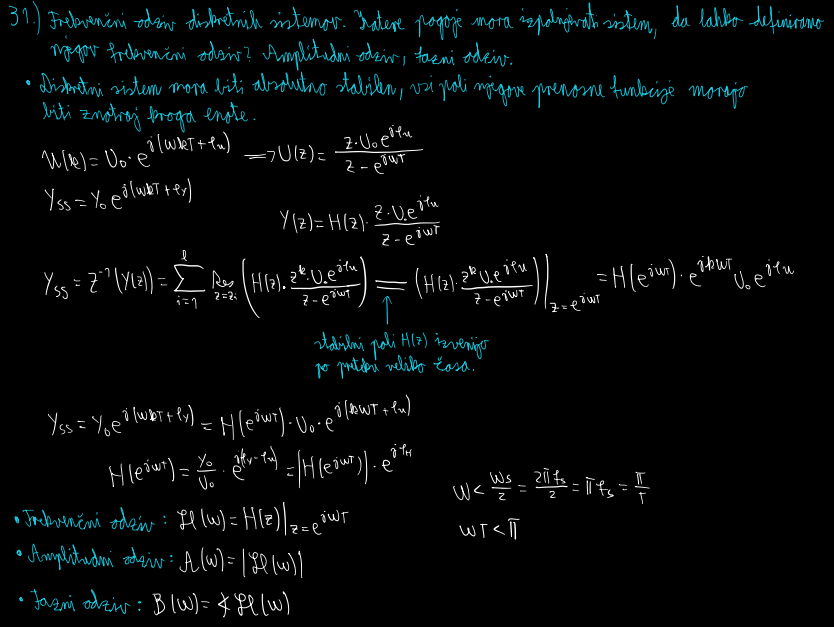 31.) Frekvenčni odziv diskretnih sistemov. Katere pogoje mora izpolnjevati sistem, da lahko definiramo
njegov frekvenčni odziv? Amplitudni odziv, fazni odziv.
• Diskretni sistem mora biti absolutno stabilen, vsi poli njegove prenosne funkcije morajo
biti znotraj kroga enote.
u(k) = U₀ · e^{j(ωkT + φ_u)} ⟹ U(z) = \frac{z · U₀ e^{jφ_u}}{z - e^{jωT}}
Y_{ss} = Y₀ e^{j(ωkT + φ_Y)}
Y(z) = H(z) · \frac{z · U₀ e^{jφ_u}}{z - e^{jωT}}
Y_{ss} = Z^{-1}(Y(z)) = \sum_{i=1}^{l} Res_{z=z_i} ( H(z) · \frac{z^k · U₀ e^{jφ_u}}{z - e^{jωT}} ) = ( H(z) · \frac{z^k U₀ e^{jφ_u}}{z - e^{jωT}} ) |_{z = e^{jωT}} = H(e^{jωT}) · e^{jkωT} U₀ e^{jφ_u}
↑
stabilni poli H(z) izzvenijo
po preteku veliko časa.
Y_{ss} = Y₀ e^{j(ωkT + φ_Y)} = H(e^{jωT}) · U₀ · e^{j(kωT + φ_u)}
H(e^{jωT}) = \frac{Y₀}{U₀} · e^{j(φ_Y - φ_u)} = |H(e^{jωT})| · e^{jφ_H}
ω < \frac{ω_s}{2} = \frac{2π f_s}{2} = π f_s = \frac{π}{T}
ωT < π
• Frekvenčni odziv : ℋ(ω) = H(z) |_{z = e^{jωT}}
• Amplitudni odziv : A(ω) = |ℋ(ω)|
• Fazni odziv : B(ω) = ∢ ℋ(ω)